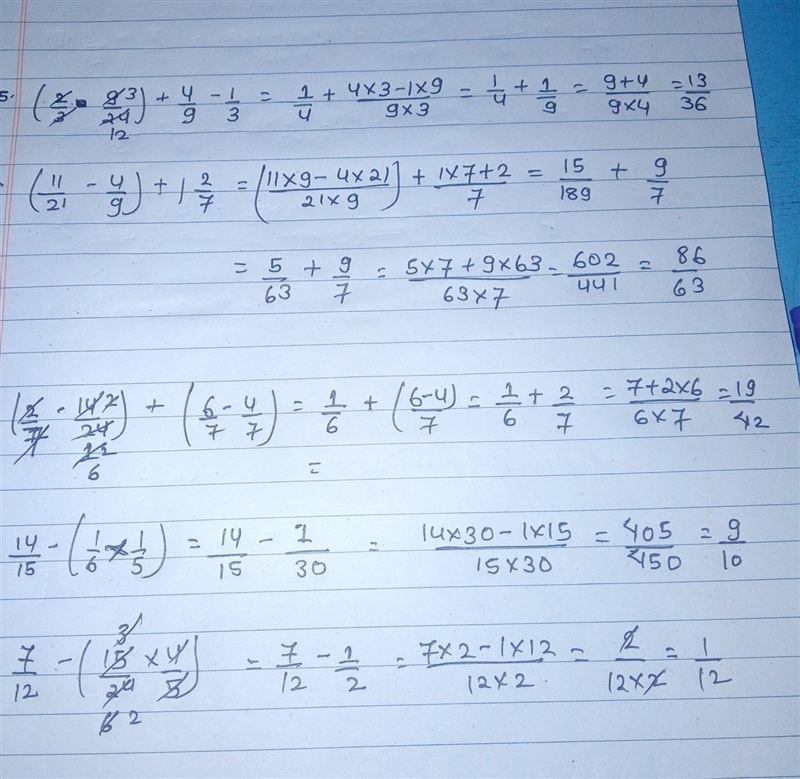 5. (2/3 · 9 3/24 12) + 4/9 - 1/3 = 1/4 + (4×3-1×9)/(9×3) = 1/4 + 1/9 = (9+4)/(9×4) = 13/36
(11/21 - 4/9) + 1 2/7 = [(11×9-4×21)/(21×9)] + (1×7+2)/7 = 15/189 + 9/7
= 5/63 + 9/7 = (5×7+9×63)/(63×7) = 602/441 = 86/63
(2/7 · 14 2/24 12 6) + (6/7 - 4/7) = 1/6 + (6-4)/7 = 1/6 + 2/7 = (7+2×6)/(6×7) = 19/42
=
14/15 - (1/6 × 1/5) = 14/15 - 1/30 = (14×30-1×15)/(15×30) = 405/450 = 9/10
7/12 - (15 3/24 6 2 × 4/5) = 7/12 - 1/2 = (7×2-1×12)/(12×2) = 2/(12×2) = 1/12